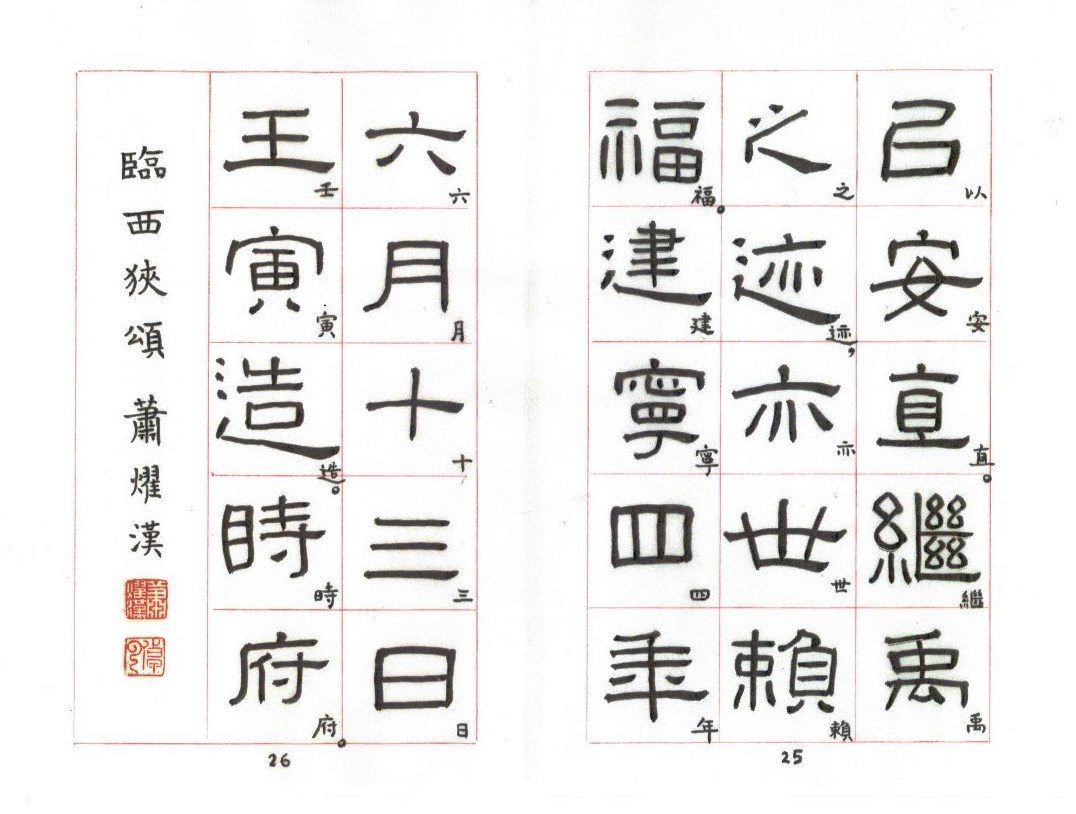 㠯安直繼禹
以安直。繼禹
之迹亦世賴
之迹，亦世賴
福建寧四年
福。建寧四年
25
六月十三日
六月十三日
壬寅造時府
壬寅造。時府。
臨西狹頌 蕭燿漢
26